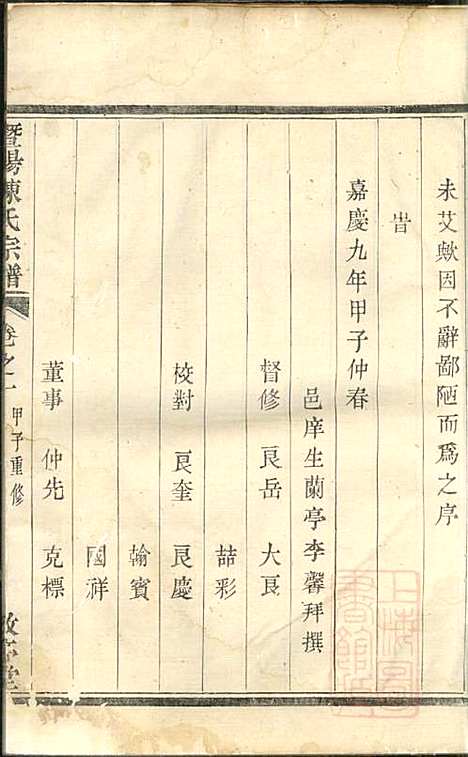 未艾歟因不辭鄙陋而為之序
旹
嘉慶九年甲子仲春
邑庠生蘭亭李馨拜撰
督修 良岳 大良
喆彩
校對 良奎 良慶
翰賓
國祥
董事 仲先 克標
暨陽陳氏宗譜 卷之一 甲子重修
上海圖書館藏